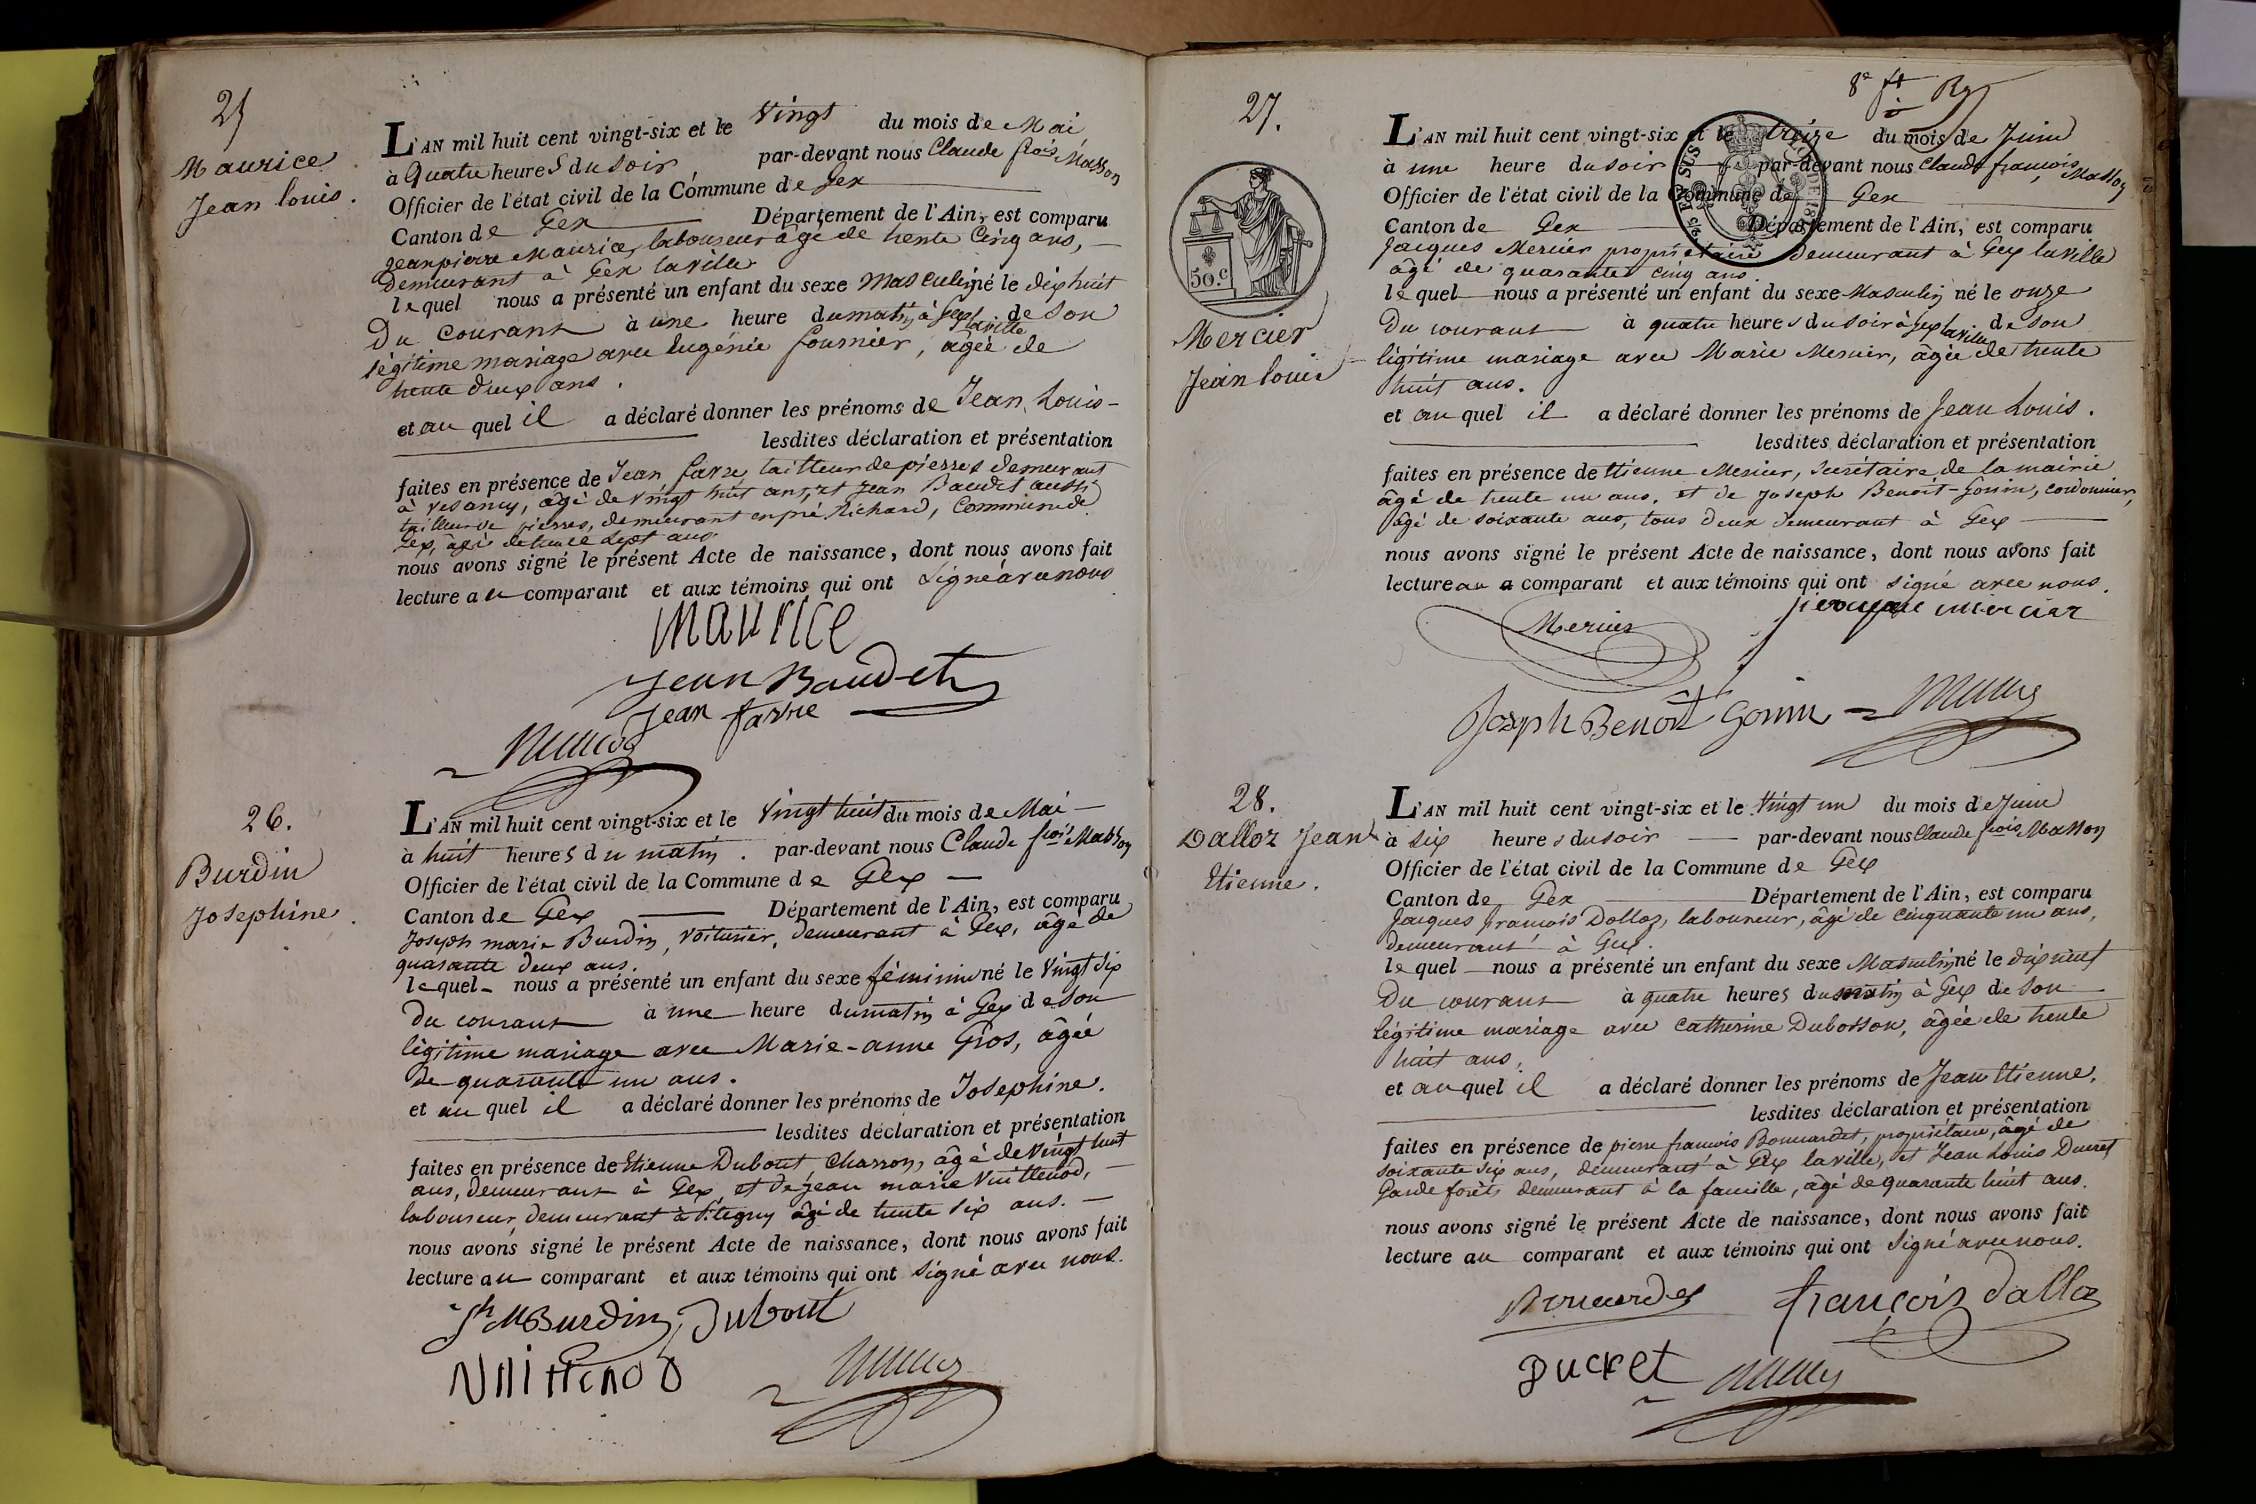 25
Maurice
Jean louis.
L'AN mil huit cent vingt-six et le Vingt du mois de Mai
à Quatre heures du soir par-devant nous Claude fçois Masson
Officier de l'état civil de la Commune de Gex
Canton de Gex Département de l'Ain, est comparu
Jeanpierre Maurice, laboureur âgé de trente Cinq ans,
demeurant à Gex laville
lequel nous a présenté un enfant du sexe Masculin né le dix huit
Du Courant à une heure du matin à Gex laville de Son
légitime mariage avec Eugénie fournier, âgée de
trente deux ans.
et au quel il a déclaré donner les prénoms de Jean Louis-
lesdites déclaration et présentation
faites en présence de Jean favre, tailleur de pierres demeurant
à Vesancy, âgé de Vingt huit ans, et Jean Baudet aussi
tailleur de pierres, demeurant en pré Richard, Commune de
Gex, âgé de trente Sept ans
nous avons signé le présent Acte de naissance, dont nous avons fait
lecture au comparant et aux témoins qui ont Signé avec nous
Maurice
Jean Baudet
Jean favre
26.
Burdin
Josephine.
L'AN mil huit cent vingt-six et le Vingt huit du mois de Mai
à huit heures du matin. par-devant nous Claude fçois Masson
Officier de l'état civil de la Commune de Gex
Canton de Gex Département de l'Ain, est comparu
Joseph marie Burdin, voiturier, demeurant à Gex, âgé de
quarante deux ans.
lequel nous a présenté un enfant du sexe féminin né le Vingt Six
du courant à une heure du matin à Gex de Son
légitime mariage avec Marie-anne Gros, âgée
de quarante un ans.
et au quel il a déclaré donner les prénoms de Josephine.
lesdites déclaration et présentation
faites en présence de Etienne Dubout, Charron, âgé de Vingt huit
ans, demeurant à Gex, et de Jean marie Vuillenod,
laboureur, demeurant à âgé de trente six ans.
nous avons signé le présent Acte de naissance, dont nous avons fait
lecture au comparant et aux témoins qui ont Signé avec nous.
Jh M Burdin Dubout
Vuillenod
8e
27.
50.c
Mercier
Jean louis
L'AN mil huit cent vingt-six et le treize du mois de Juin
à une heure du soir par-devant nous Claude françois Masson
Officier de l'état civil de la Commune de Gex
Canton de Gex Département de l'Ain, est comparu
Jacques Mercier propriétaire demeurant à Gex laville
âgé de quarante cinq ans
lequel nous a présenté un enfant du sexe Masculin né le onze
Du courant à quatre heures du soir à Gex laville de Son
légitime mariage avec Marie Mercier, âgée de trente
huit ans.
et au quel il a déclaré donner les prénoms de Jean Louis.
lesdites déclaration et présentation
faites en présence de Etienne Mercier, secrétaire de la mairie
âgé de trente un ans, et de Joseph Benoit-Gonin, cordonnier,
âgé de soixante ans, tous deux demeurant à Gex
nous avons signé le présent Acte de naissance, dont nous avons fait
lecture au comparant et aux témoins qui ont signé avec nous.
Mercier mercier
Joseph Benoît Gonin
28.
Dalloz Jean
Etienne.
L'AN mil huit cent vingt-six et le Vingt un du mois de Juin
à six heures du soir par-devant nous Claude fçois Masson
Officier de l'état civil de la Commune de Gex
Canton de Gex Département de l'Ain, est comparu
Jacques françois Dalloz, laboureur, âgé de cinquante un ans,
demeurant à Gex.
lequel nous a présenté un enfant du sexe Masculin né le dix neuf
Du courant à quatre heures du matin à Gex de Son
légitime mariage avec Catherine Dubosson, âgée de trente
huit ans,
et au quel il a déclaré donner les prénoms de Jean Etienne.
lesdites déclaration et présentation
faites en présence de pierre françois Bonnardet, propriétaire, âgé de
soixante six ans, demeurant à Gex laville, et Jean Louis Ducret
Garde forêts demeurant à la faucille, âgé de quarante huit ans.
nous avons signé le présent Acte de naissance, dont nous avons fait
lecture au comparant et aux témoins qui ont Signé avec nous.
françois dalloz
Ducret